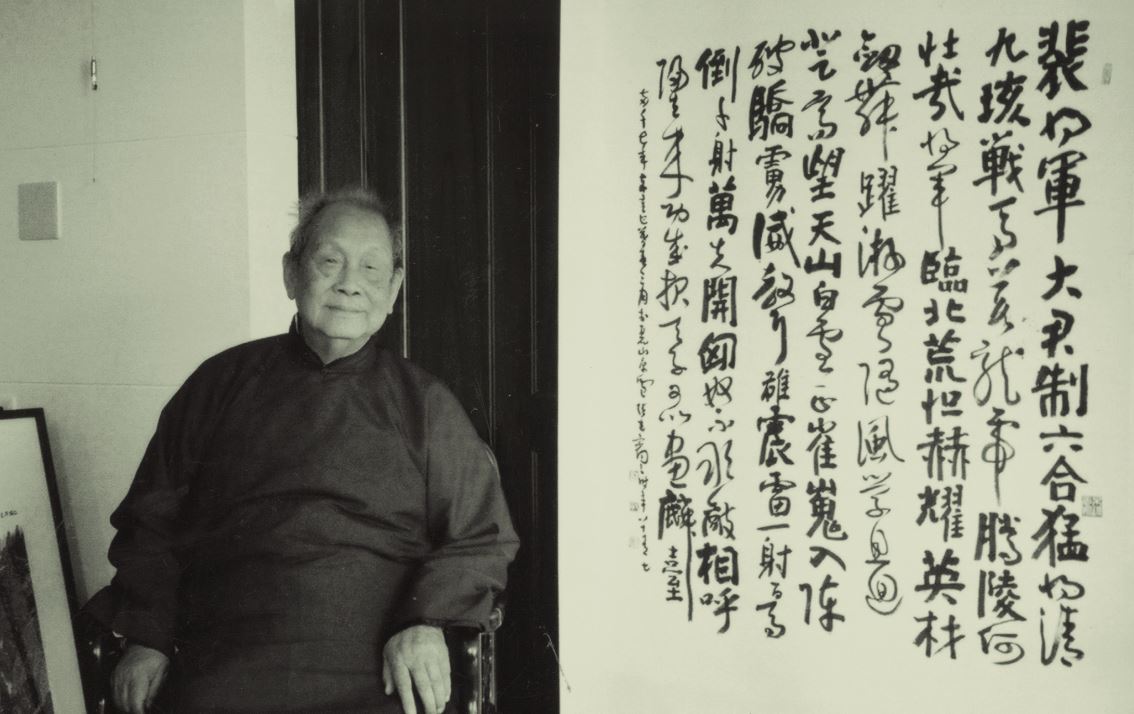 裴将軍大君制六合猛将清
九垓戰馬若龍虎騰陵何
壯哉将軍臨北荒烜赫耀英材
劍舞躍游電随風縈且迴
登高望天山白雲正崔嵬入陣
破驕虜威聲雄震雷一射百馬
倒再射萬夫開匈奴不敢敵相呼
歸去来功成报天子可以畫麟臺